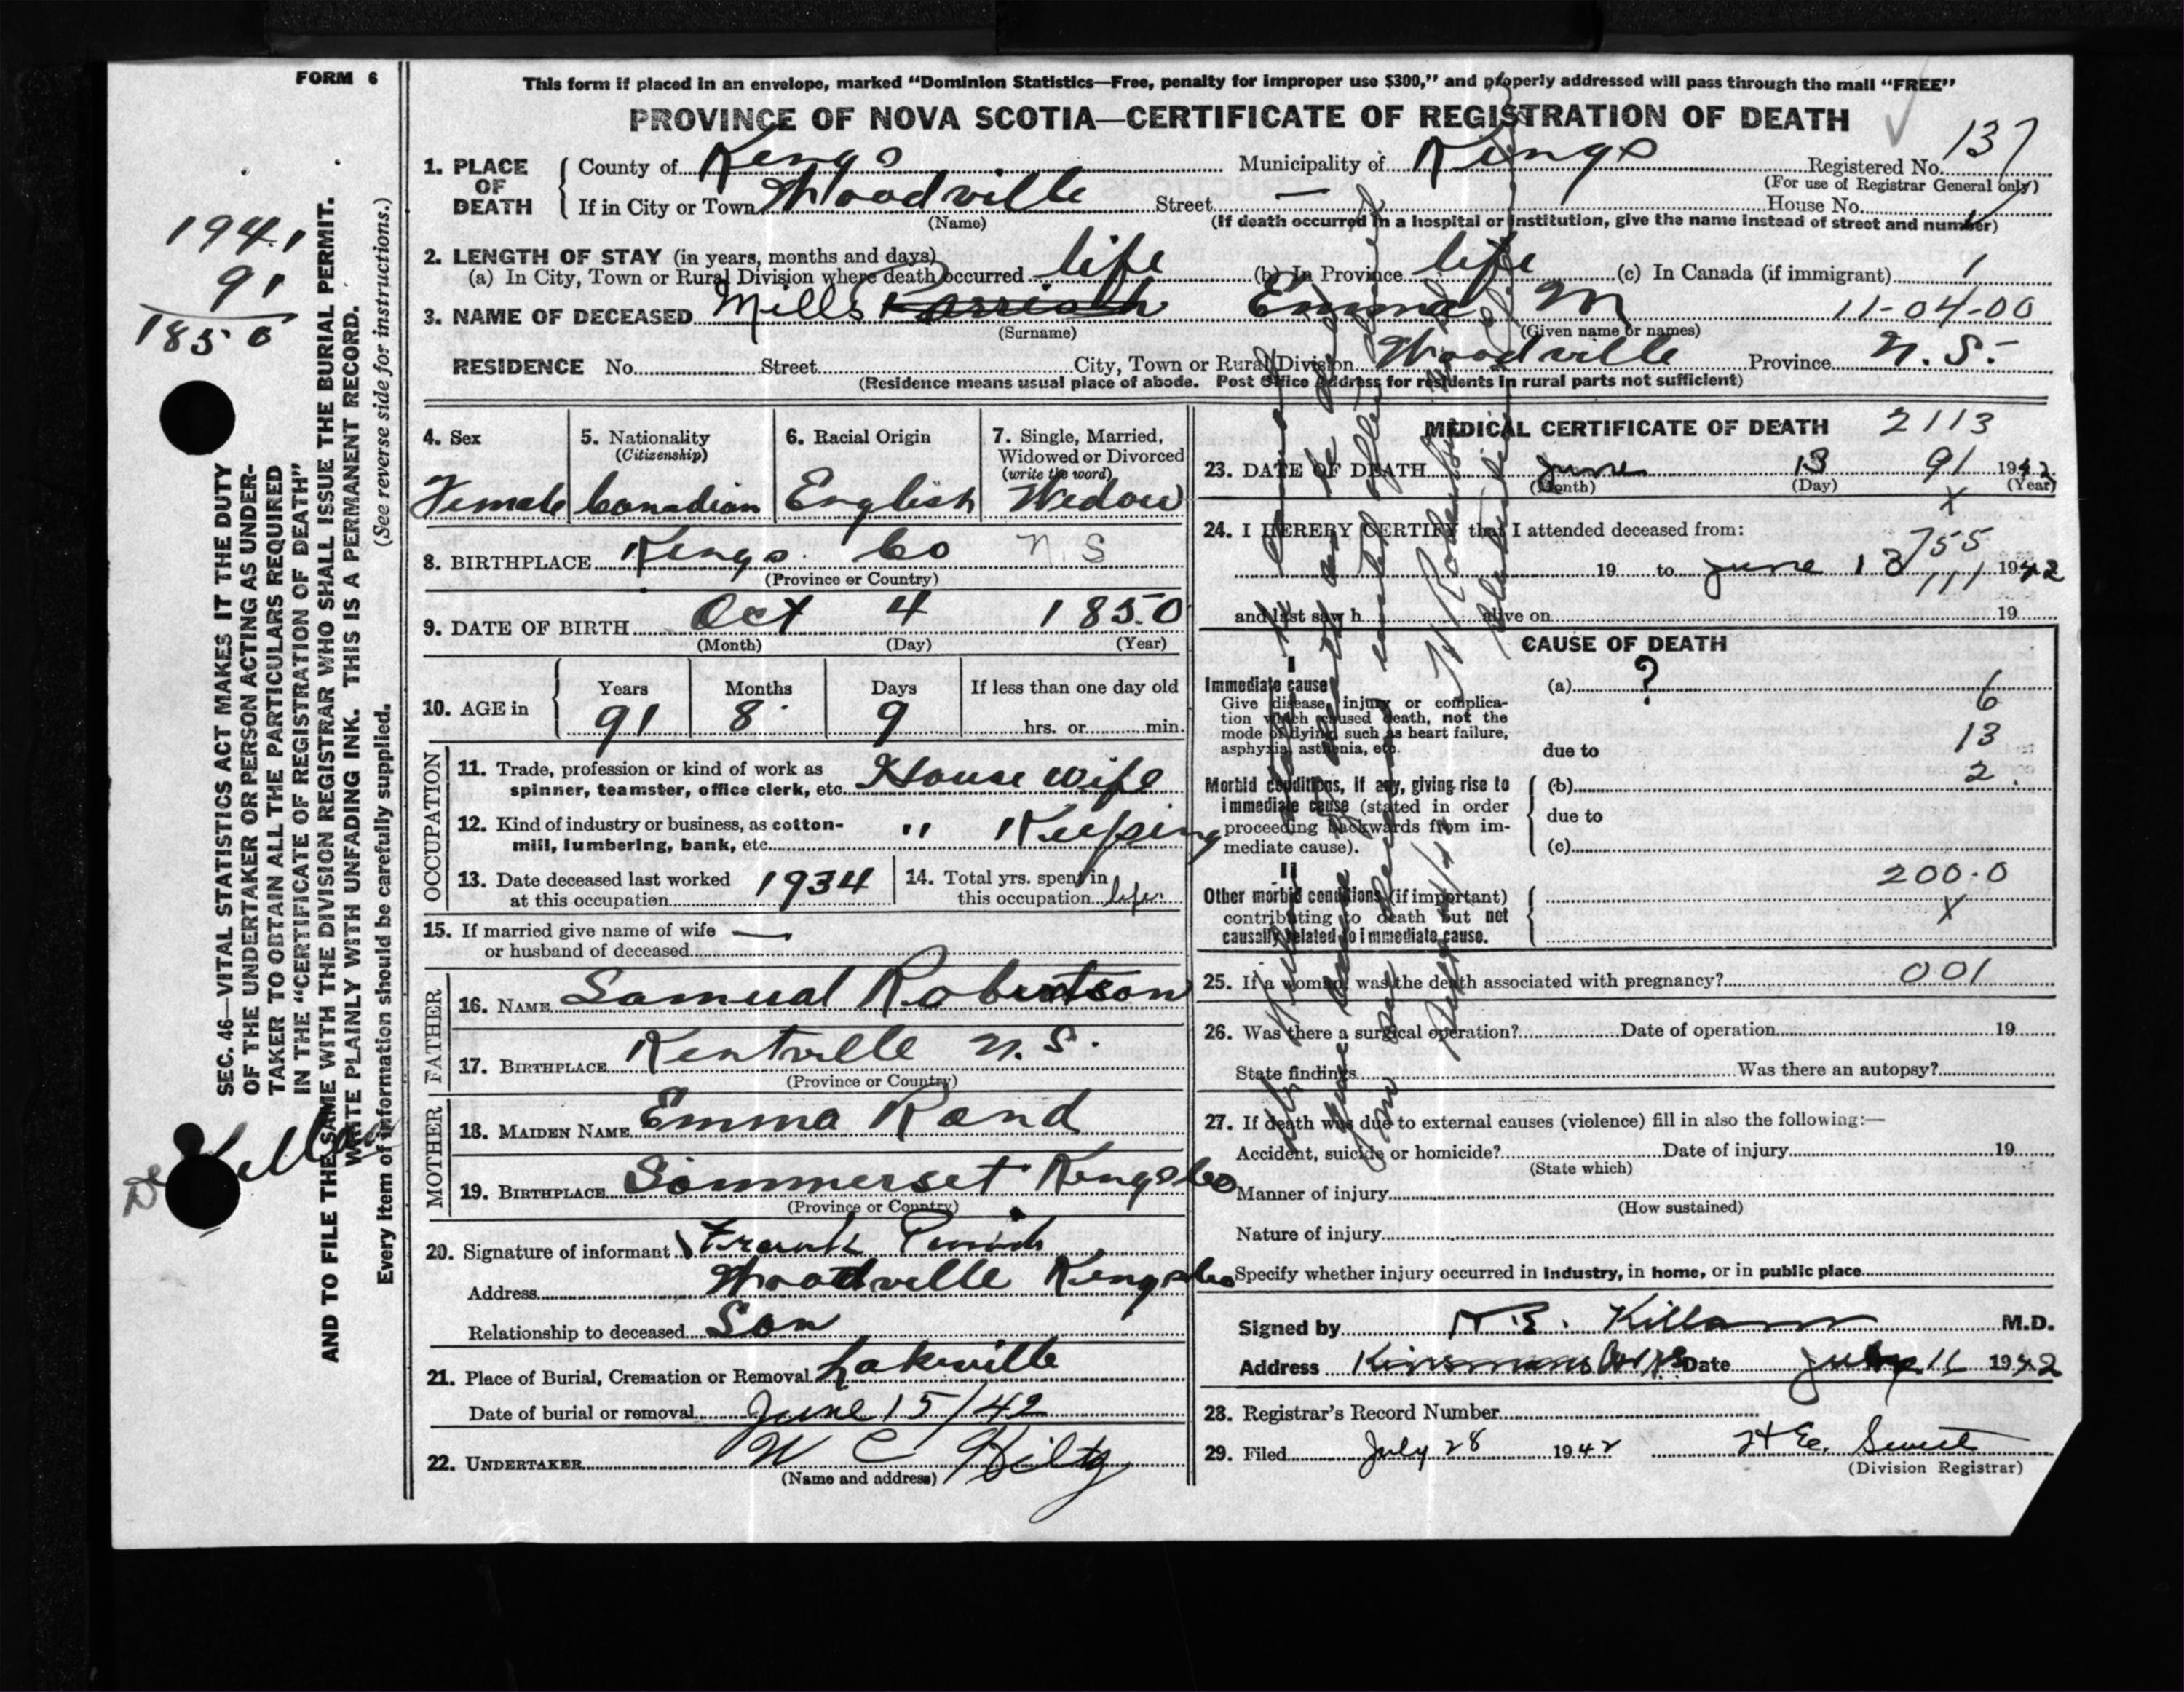 FORM 6
This form if placed in an envelope, marked “Dominion Statistics—Free, penalty for improper use $300,” and properly addressed will pass through the mail “FREE”
PROVINCE OF NOVA SCOTIA—CERTIFICATE OF REGISTRATION OF DEATH
1. PLACE OF DEATH
County of Kings Municipality of Kings Registered No. 137
(For use of Registrar General only)
If in City or Town Woodville Street — House No.
(Name) (If death occurred in a hospital or institution, give the name instead of street and number)
2. LENGTH OF STAY (in years, months and days)
(a) In City, Town or Rural Division where death occurred life (b) In Province life (c) In Canada (if immigrant) 1
3. NAME OF DECEASED Mills Emma M 11-04-00
(Surname) (Given name or names)
RESIDENCE No. Street City, Town or Rural Division Woodville Province N.S.
(Residence means usual place of abode. Post Office Address for residents in rural parts not sufficient)
1941
91
1850
SEC. 46—VITAL STATISTICS ACT MAKES IT THE DUTY
OF THE UNDERTAKER OR PERSON ACTING AS UNDER-
TAKER TO OBTAIN ALL THE PARTICULARS REQUIRED
IN THE “CERTIFICATE OF REGISTRATION OF DEATH”
AND TO FILE THE SAME WITH THE DIVISION REGISTRAR WHO SHALL ISSUE THE BURIAL PERMIT.
WRITE PLAINLY WITH UNFADING INK. THIS IS A PERMANENT RECORD.
Every item of information should be carefully supplied. (See reverse side for instructions.)
4. Sex 5. Nationality 6. Racial Origin 7. Single, Married,
(Citizenship) Widowed or Divorced
(write the word)
Female Canadian English Widow
8. BIRTHPLACE Kings Co N.S
(Province or Country)
9. DATE OF BIRTH Oct 4 1850
(Month) (Day) (Year)
10. AGE in Years Months Days If less than one day old
91 8 9 hrs. or min.
OCCUPATION
11. Trade, profession or kind of work as
spinner, teamster, office clerk, etc. House wife
12. Kind of industry or business, as cotton-
mill, lumbering, bank, etc. " Keeping
13. Date deceased last worked
at this occupation 1934
14. Total yrs. spent in
this occupation life
15. If married give name of wife
or husband of deceased —
FATHER
16. NAME Samual Robertson
17. BIRTHPLACE Kentville N.S.
(Province or Country)
MOTHER
18. MAIDEN NAME Emma Rand
19. BIRTHPLACE Sommerset Kings Co
(Province or Country)
20. Signature of informant Frank
Address Woodville Kings Co
Relationship to deceased Son
21. Place of Burial, Cremation or Removal Lakeville
Date of burial or removal June 15/42
22. UNDERTAKER W C
(Name and address)
MEDICAL CERTIFICATE OF DEATH 2113
23. DATE OF DEATH June 13 91 1942
(Month) (Day) (Year)
X
24. I HEREBY CERTIFY that I attended deceased from:
755
19 to June 13 1942
111
and last saw h alive on 19
CAUSE OF DEATH
I
Immediate cause
Give disease, injury or complica-
tion which caused death, not the
mode of dying, such as heart failure,
asphyxia, asthenia, etc.
(a) ?
6
due to 13
Morbid conditions, if any, giving rise to
immediate cause (stated in order
proceeding backwards from im-
mediate cause).
(b) 2
due to
(c)
II
Other morbid conditions (if important)
contributing to death but not
causally related to immediate cause.
200.0
X
25. If a woman, was the death associated with pregnancy? 001
26. Was there a surgical operation? Date of operation 19
State findings Was there an autopsy?
27. If death was due to external causes (violence) fill in also the following:—
Accident, suicide or homicide? Date of injury 19
(State which)
Manner of injury
(How sustained)
Nature of injury
Specify whether injury occurred in industry, in home, or in public place
Signed by Killam M.D.
Address Date 1942
28. Registrar's Record Number
29. Filed July 28 1942 H E.
(Division Registrar)